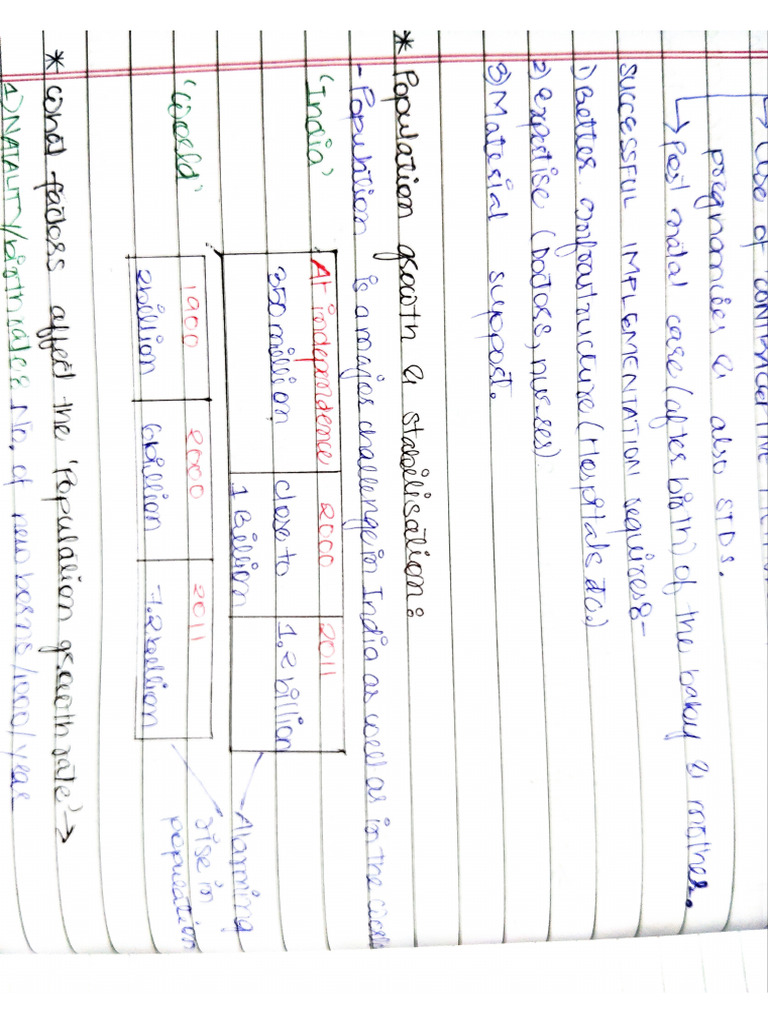 ↳ Use of 'CONTRACEPTIVE
pregnancies & also STDs.
↳ Post natal care (after birth) of the baby & mother.
SUCCESSFUL IMPLEMENTATION requires:-
1) Better infrastructure (Hospitals etc.)
2) expertise (Doctors, nurses)
3) Material support.
* Population growth & stabilisation:
- Population is a major challenge in India as well as in the
'India'
At independence 2000 2011
350 million close to 1 Billion 1.2 billion
Alarming rise in population
'World'
1900 2000 2011
2 billion 6 billion 7.2 billion
* Which factors affect the 'Population growth rate' →
1) NATALITY/birth rate: No. of new borns/1000/year